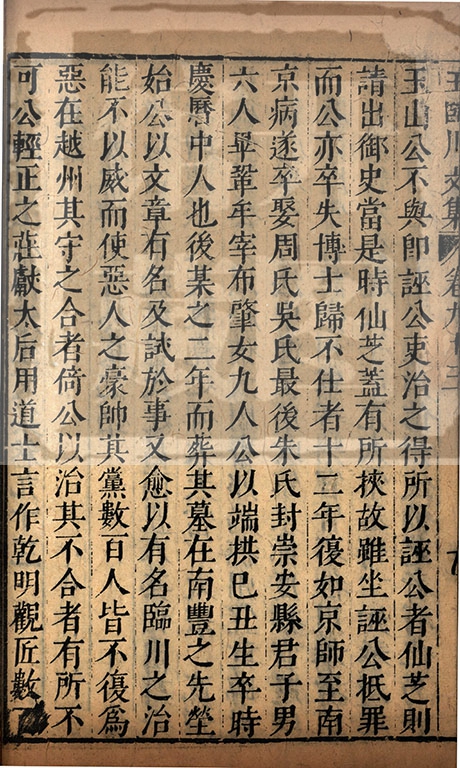 王臨川文集 卷九十三
玉山公不與即誣公吏治之得所以誣公者仙芝則
請出御史當是時仙芝蓋有所挾故雖坐誣公抵罪
而公亦卒失博士歸不仕者十二年復如京師至南
京病遂卒娶周氏吳氏最後朱氏封崇安縣君子男
六人曅鞏牟宰布肇女九人公以端拱己丑生卒時
慶曆中人也後某之二年而葬其墓在南豐之先塋
始公以文章有名及試於事又愈以有名臨川之治
能不以威而使惡人之豪帥其黨數百人皆不復為
惡在越州其守之合者倚公以治其不合者有所不
可公輕正之莊獻太后用道士言作乾明觀匠數